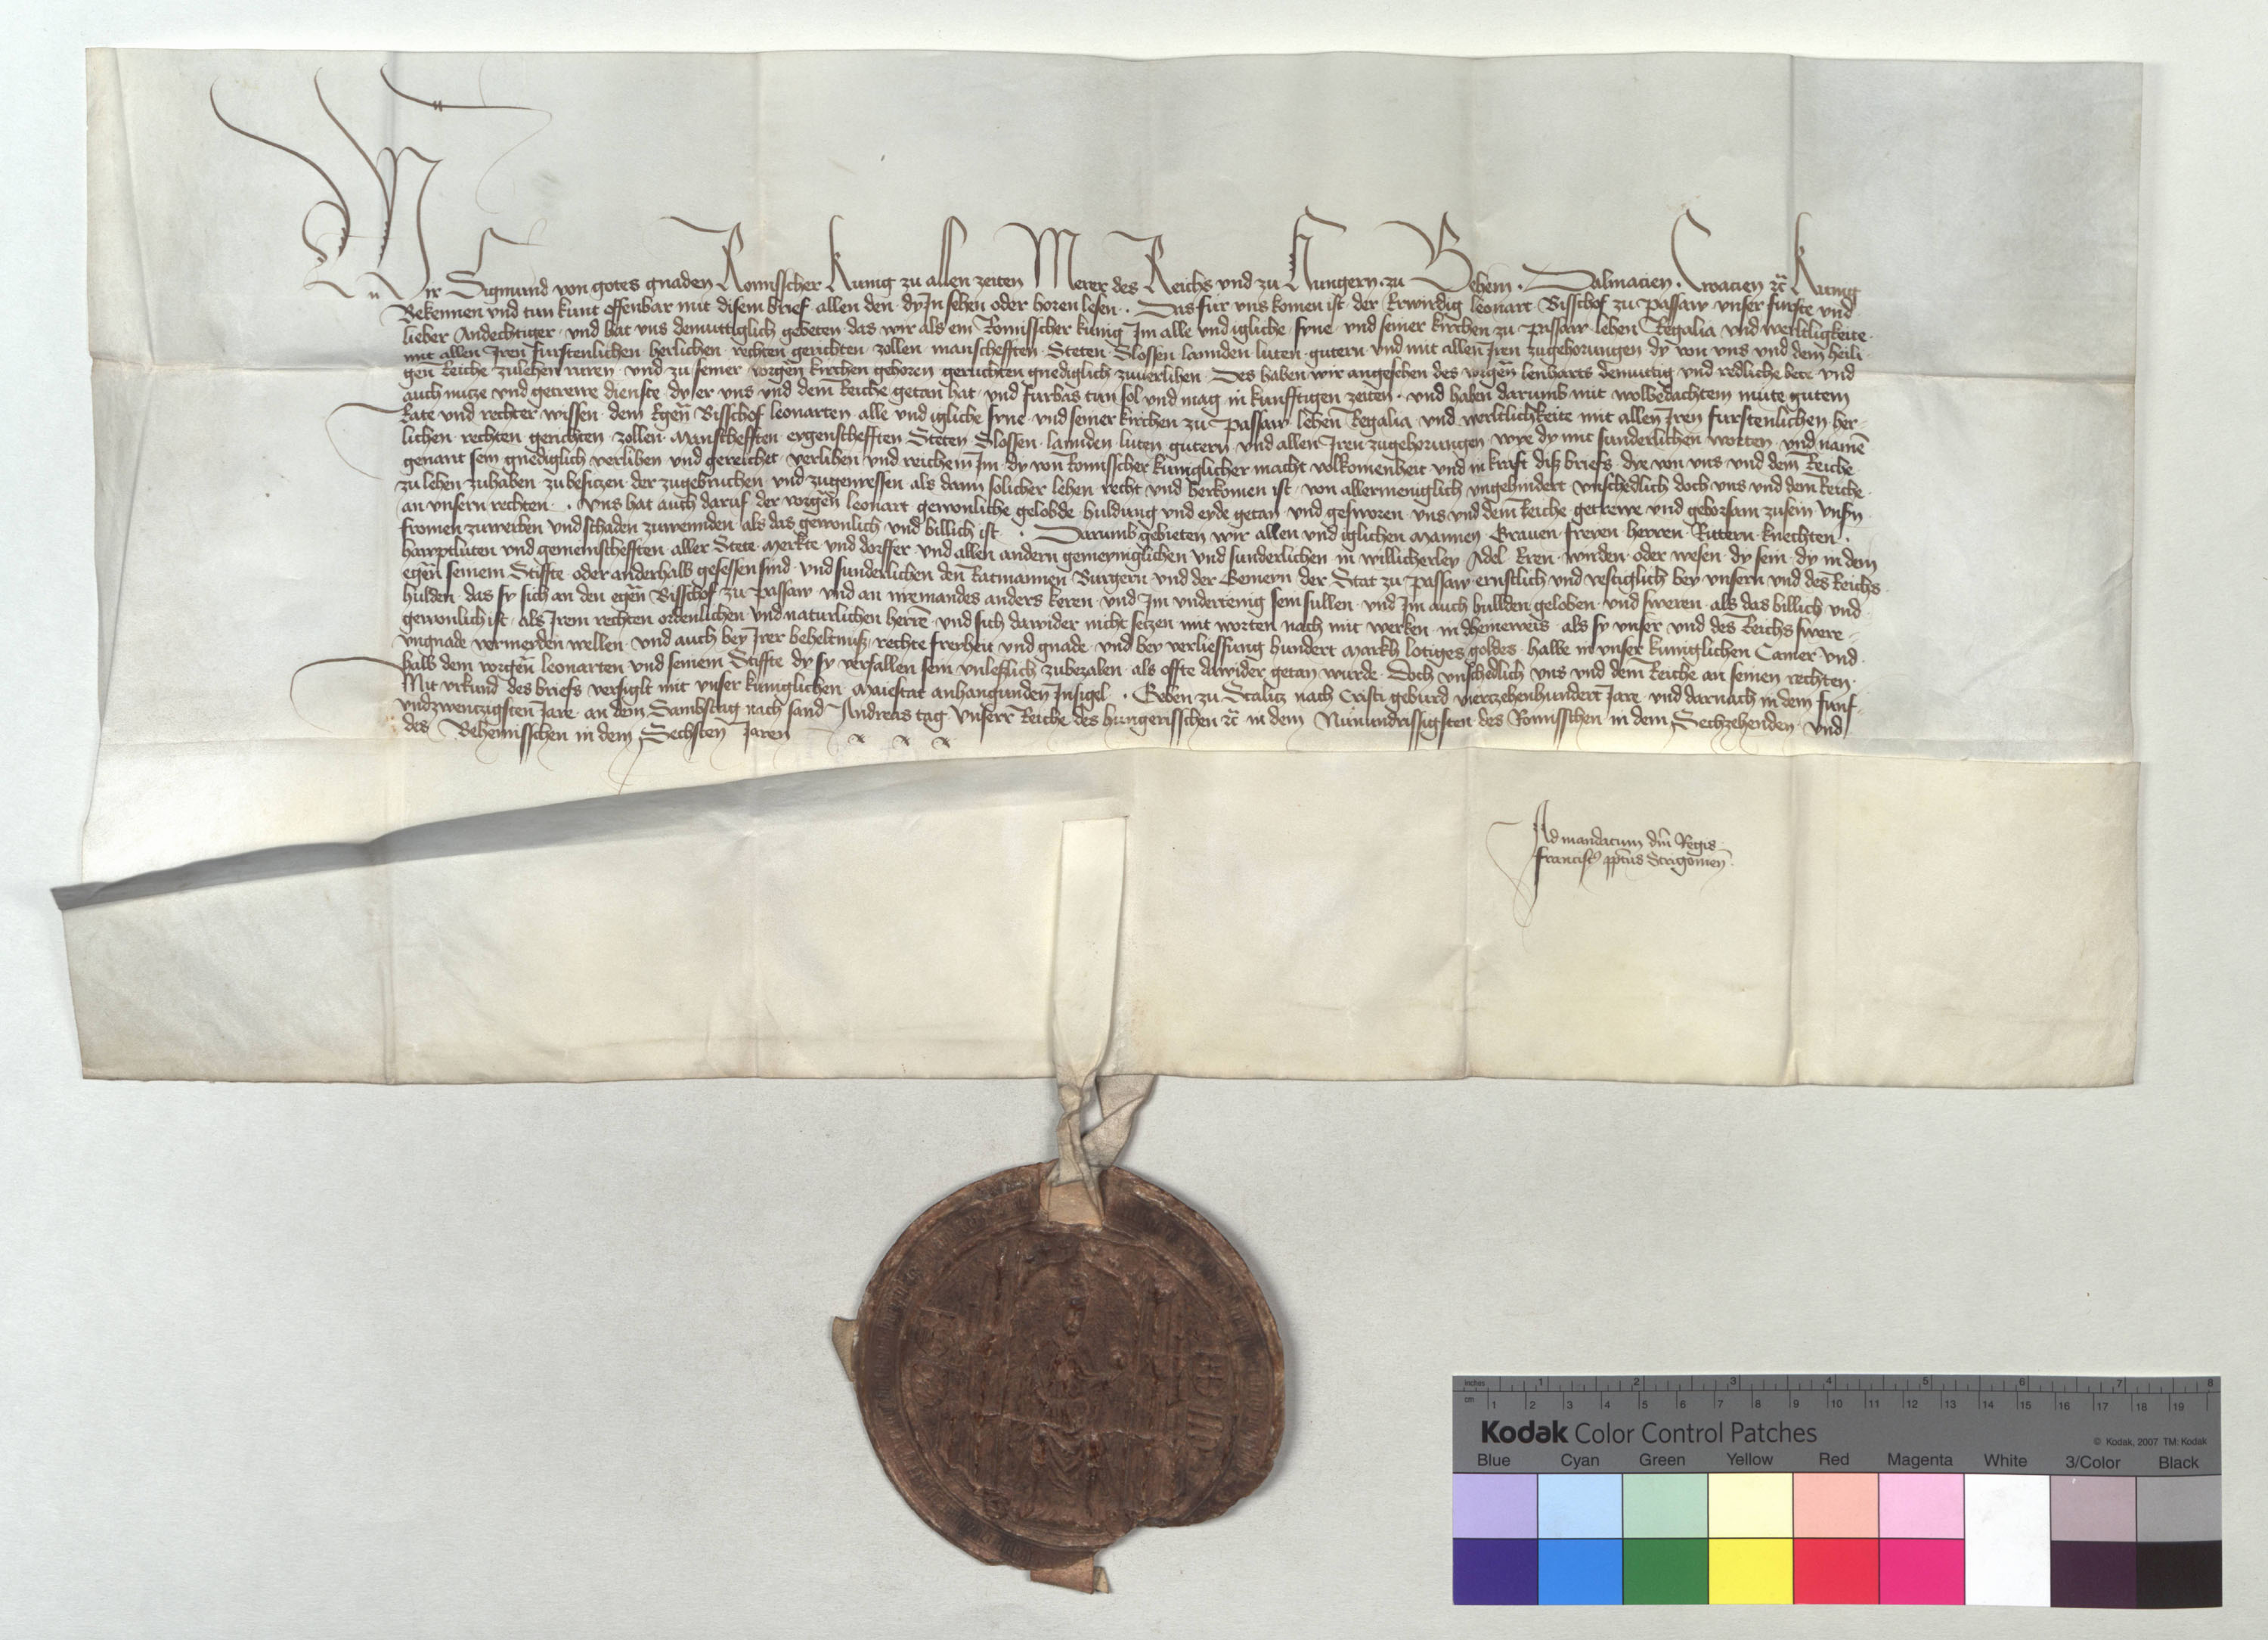 Wir Sigmund von gotes gnaden Romisscher Kunig zu allen zeiten Merer des Reichs und zu Hungern zu Behem Dalmacien Croacien ꝛc̄ Kunig
Bekennen und tun kunt offenbar mit disem brief allen den dy In sehen oder horen lesen Das fur uns komen ist der Erwirdig leonart Bisschof zu Passaw unser furste und
lieber Andechtiger und hat uns demuttiglich gebeten das wir als ein Romisscher kunig Im alle und igliche syne und seiner kirchen zu Passaw lehen Regalia und werltligkeite
mit allen Iren furstenlichen herlichen rechten gerichten zollen manschefften Steten Slossen lannden luten gutern und mit allen Iren zugehorungen dy von uns und dem heili-
gen Reiche zulehen ruren und zu seiner vorgen̄ kirchen gehoren geruchten gnediglich zuverlihen Des haben wir angesehen des vigen̄ lenharts demuttig und redliche bete und
auch nucze und getrewe dienste dy er uns und dem Reiche getan hat und furbas tun sol und mag in kunfftigen zeiten und haben darumb mit wolbedachtem mute gutem
Rate und rechter wissen dem Egen̄ Bisschof leonarten alle und igliche syne und seiner kirchen zu Passaw lehen Regalia und werltlichkeite mit allen Iren furstenlichen her-
lichen rechten gerichten zollen Manschefften eygenschefften Steten Slossen lannden luten gutern und allen Iren zugehorungen wye dy mit sunderlichen worten und namē
genant sein gnediglich verlihen und gereichet verlihen und reichein Im dy von Romisscher kuniglicher macht volkomenheit und in kraft diß briefs dye von uns und dem Reiche
zu lehen zuhaben zubesiczen der zugebruchen und zugenyessen als dann solicher lehen recht und herkomen ist von allermeniglich ungehindert unschedlich doch uns und dem Reiche
an unsern rechten Uns hat auch daruf der vorgen̄ leonart gewonliche gelobde huldung und eyde getan und gesworen uns und dem Reiche getrewe und gehorsam zusein unsn̄
fromen zuwerben und schaden zuwennden als das gewonlich und billich ist Darumb gebieten wir allen und iglichen Mannen Grauen freyen herren Rittern knechten
hawptluten und gemeinschefften aller Stete Merkte und dorffer und allen andern gemeyniglichen und sunderlichen in willicherley Adel Eren wirden oder wesen dy sein dy in dem
egen̄ seinem Stiffte oder anderhalb gesessen sind und sunderlichen den Ratmannen Burgern und der Gemeyn der Stat zu Passaw ernstlich und vestiglich bey unsern und des Reichs
hulden das sy sich an den egen̄ Bisschof zu Passaw und an nyemandes anders keren und Im undertenig sein sullen und Im auch hullden geloben und sweren als das billich und
gewonlich ist als Irem rechten ordenlichen und naturlichen herrē und sich dawider nicht setzen mit worten nach mit werken in dheineweis als sy unser und des Reichs swere
ungnade vermeyden wellen und auch bey Irer beheltnuß rechte freyheit und gnade und bey verliessung hundert Markh lotiges goldes halbe in unser kuniglichen Camer und
halb dem vorgen̄ leonarten und seinem Stiffte dy sy verfallen sein unleßlich zubezalen als offte dawider getan wurde Doch unschedlich uns und dem Reiche an seinen rechten
Mit urkund des briefs versiglt mit unser kuniglichen Maiestat anhangunden Insigel Geben zu Scalitz nach Cristi geburd vierczehenhundert Jare und darnach in dem funf-
undzwenczigsten Jare an dem Sambstag nach sand Andreas tag Unserr Reiche des hungerisschen ꝛc̄ in dem Nunundrissigsten des Romisschen in dem Sechzehenden und
des Behemisschen in dem Sechsten Jaren
Ad mandatum dn̄i Regis
Franciscꝯ pp̄tus Strigonien̄
inches 1 2 3 4 5 6 7 8
cm 1 2 3 4 5 6 7 8 9 10 11 12 13 14 15 16 17 18 19
Kodak Color Control Patches © Kodak, 2007 TM: Kodak
Blue Cyan Green Yellow Red Magenta White 3/Color Black